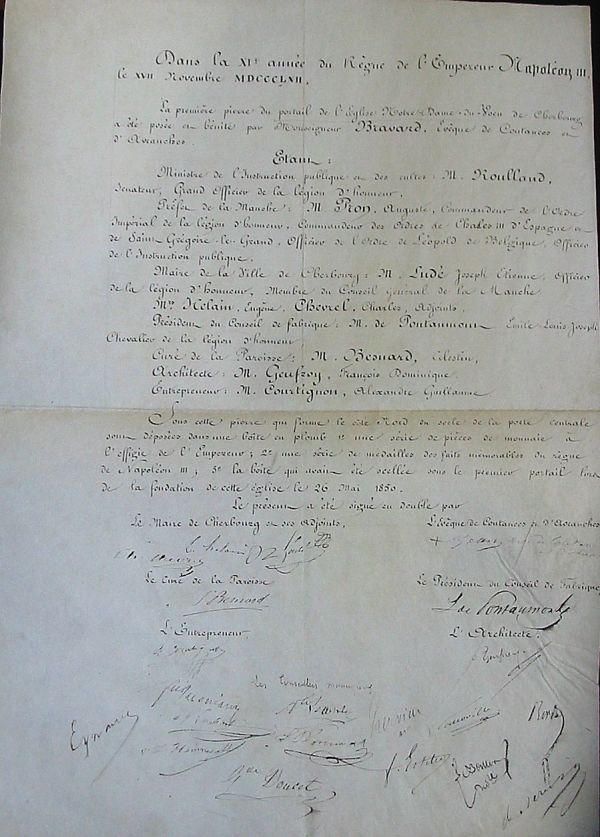 Dans la XIe année du Règne de l'Empereur Napoléon III,
le XVII Novembre MDCCCLXII.
La première pierre du portail de l'église Notre-Dame-du-Vœu de Cherbourg
a été posée et bénite par Monseigneur Bravard, Evêque de Coutances et
d'Avranches.
Etant:
Ministre de l'Instruction publique et des cultes: M. Roulland,
Senateur, Grand Officier de la légion d'honneur,
Préfet de la Manche: M. Pron, Auguste, Commandeur de l'Ordre
Impérial de la légion d'honneur, Commandeur des Ordres de Chales III d'Espagne et
de Saint Grégoire-le-Grand, Officier de l'Ordre de Léopold de Belgique, Officier
de l'Instruction publique.
Maire de la Ville de Cherbourg: M. Ludé Joseph Etienne, Officier
de la légion d'honneur, Membre du Conseil Général de la Manche
Mrs Helain, Eugène, Chevrel, Charles, Adjoints,
Président du Conseil de fabrique: M. de Pontaumont Emile-Louis-Joseph
Chevalier de la légion d'honneur,
Curé de la Paroisse: M. Besnard, Célestin,
Architecte: M. Geufroy, François Dominique.
Entrepreneur: M. Courtignon, Alexandre Guillaume
Sous cette pierre qui forme le côté Nord du socle de la porte centrale
sont déposées dans une boîte en plomb 1° une série de pièces de monnaie à
l'effigie de l'Empereur; 2° une série de medailles des faits mémorables du règne
de Napoléon III; 3° la boîte qui avait été scellée sous le premier portail lors
de la fondation de cette église le 26 Mai 1850.
Le présent a été signé en double par
Le Maire de Cherbourg et ses Adjoints, L'Evêque de Coutances et d'Avranches
Le Curé de la Paroisse Le Président du Conseil de Fabrique
Besnard L. de Pontaumont
L'Entrepreneur L'Architecte.
Geufroy
Les Conseillers municipaux
Doucet